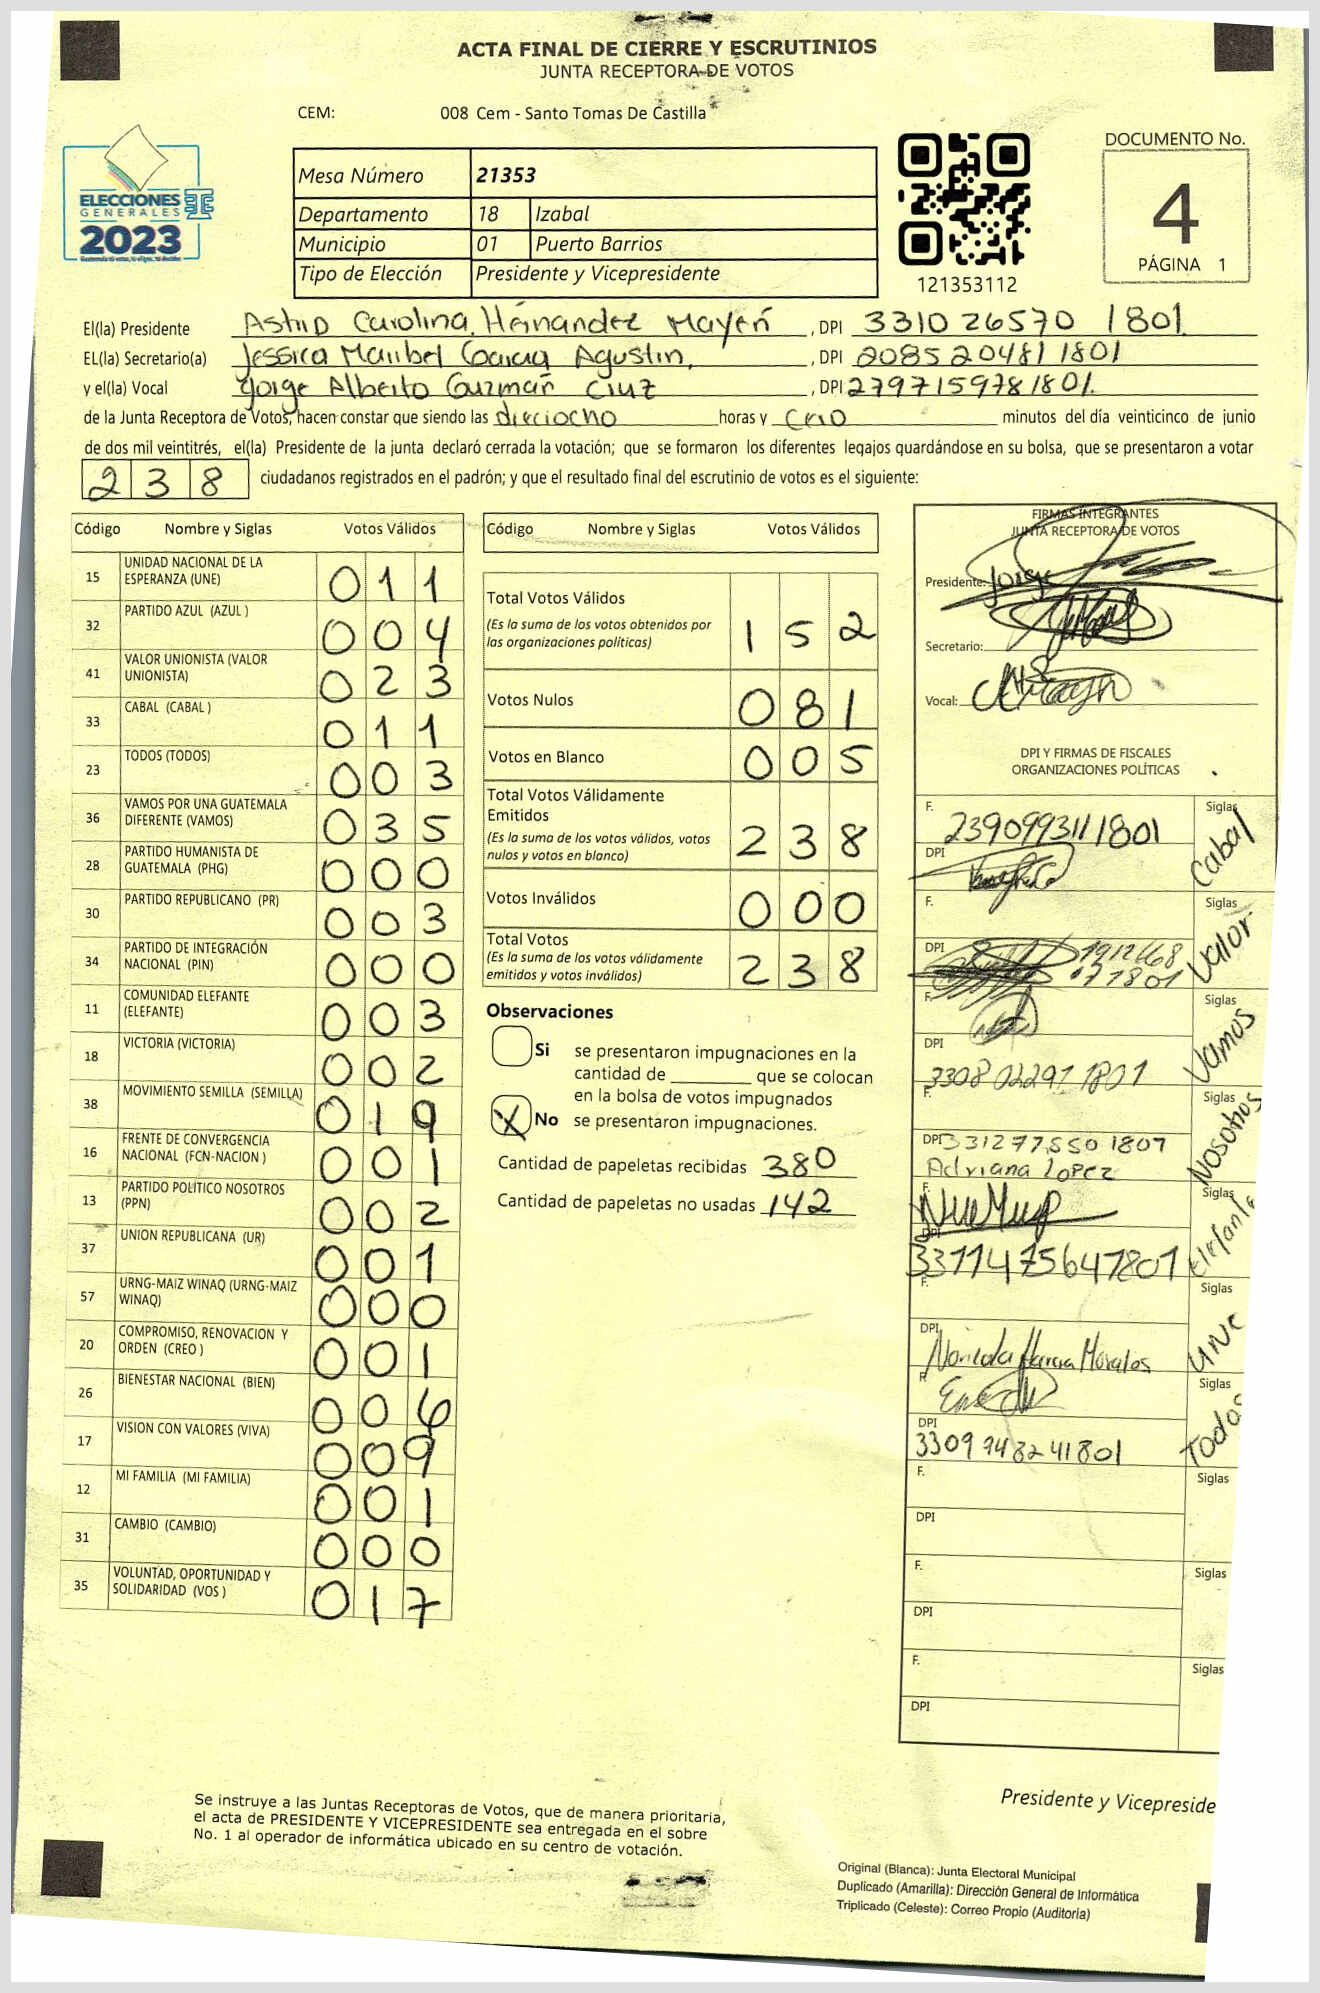 ACTA FINAL DE CIERRE Y ESCRUTINIOS
JUNTA RECEPTORA DE VOTOS
CEM: 008 Cem - Santo Tomas De Castilla
ELECCIONES
GENERALES
2023
Mesa Número 21353
Departamento 18 Izabal
Municipio 01 Puerto Barrios
Tipo de Elección Presidente y Vicepresidente
121353112
DOCUMENTO No.
4
PÁGINA 1
El(la) Presidente Astrid Carolina Hernandez Mayen, DPI 3310 26570 1801
EL(la) Secretario(a) Jessica Maribel Garcia Agustin, DPI 2085 20481 1801
y el(la) Vocal Jorge Alberto Guzman Cruz, DPI 2797159781801.
de la Junta Receptora de Votos, hacen constar que siendo las dieciocho horas y cero minutos del día veinticinco de junio
de dos mil veintitrés, el(la) Presidente de la junta declaró cerrada la votación; que se formaron los diferentes legajos guardándose en su bolsa, que se presentaron a votar
238 ciudadanos registrados en el padrón; y que el resultado final del escrutinio de votos es el siguiente:
Código Nombre y Siglas Votos Válidos
15 UNIDAD NACIONAL DE LA ESPERANZA (UNE) 011
32 PARTIDO AZUL (AZUL ) 004
41 VALOR UNIONISTA (VALOR UNIONISTA) 023
33 CABAL (CABAL ) 011
23 TODOS (TODOS) 003
36 VAMOS POR UNA GUATEMALA DIFERENTE (VAMOS) 035
28 PARTIDO HUMANISTA DE GUATEMALA (PHG) 000
30 PARTIDO REPUBLICANO (PR) 003
34 PARTIDO DE INTEGRACIÓN NACIONAL (PIN) 000
11 COMUNIDAD ELEFANTE (ELEFANTE) 003
18 VICTORIA (VICTORIA) 002
38 MOVIMIENTO SEMILLA (SEMILLA) 019
16 FRENTE DE CONVERGENCIA NACIONAL (FCN-NACION ) 001
13 PARTIDO POLITICO NOSOTROS (PPN) 002
37 UNION REPUBLICANA (UR) 001
57 URNG-MAIZ WINAQ (URNG-MAIZ WINAQ) 000
20 COMPROMISO, RENOVACION Y ORDEN (CREO ) 001
26 BIENESTAR NACIONAL (BIEN) 006
17 VISION CON VALORES (VIVA) 009
12 MI FAMILIA (MI FAMILIA) 001
31 CAMBIO (CAMBIO) 000
35 VOLUNTAD, OPORTUNIDAD Y SOLIDARIDAD (VOS ) 017
Código Nombre y Siglas Votos Válidos
Total Votos Válidos 152
(Es la suma de los votos obtenidos por
las organizaciones políticas)
Votos Nulos 081
Votos en Blanco 005
Total Votos Válidamente
Emitidos 238
(Es la suma de los votos válidos, votos
nulos y votos en blanco)
Votos Inválidos 000
Total Votos 238
(Es la suma de los votos válidamente
emitidos y votos inválidos)
Observaciones
Si se presentaron impugnaciones en la
cantidad de ________ que se colocan
en la bolsa de votos impugnados
X No se presentaron impugnaciones.
Cantidad de papeletas recibidas 380
Cantidad de papeletas no usadas 142
FIRMAS INTEGRANTES
JUNTA RECEPTORA DE VOTOS
Presidente: Jorge
Secretario:
Vocal:
DPI Y FIRMAS DE FISCALES
ORGANIZACIONES POLÍTICAS
F. 2390993111801 Siglas Cabal
DPI
F. Siglas Valor
DPI 1912668
071801
F. Siglas Vamos
DPI 3308 02297 1801
F. Siglas Nosotros
DPI 331277550 1807
Adriana Lopez
F. Siglas Elefante
DPI 3371475647801
F. Siglas UNE
DPI
F. Siglas Todos
DPI 3309948241801
F. Siglas
DPI
F. Siglas
DPI
F. Siglas
DPI
Presidente y Vicepreside
Se instruye a las Juntas Receptoras de Votos, que de manera prioritaria,
el acta de PRESIDENTE Y VICEPRESIDENTE sea entregada en el sobre
No. 1 al operador de informática ubicado en su centro de votación.
Original (Blanca): Junta Electoral Municipal
Duplicado (Amarilla): Dirección General de Informática
Triplicado (Celeste): Correo Propio (Auditoría)